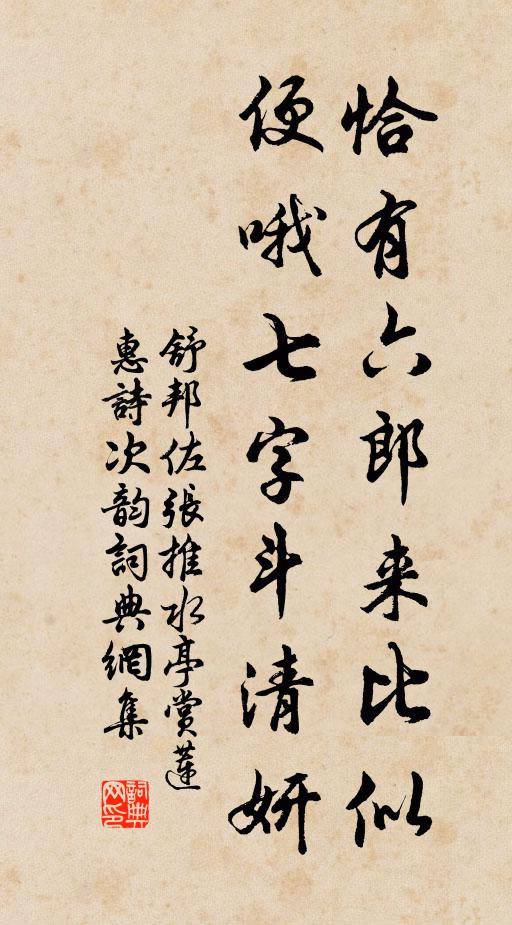 恰有六郎来比似
便哦七字斗清妍
舒邦佐張推水亭賞蓮
惠詩次韵詞典網集
詞典网印